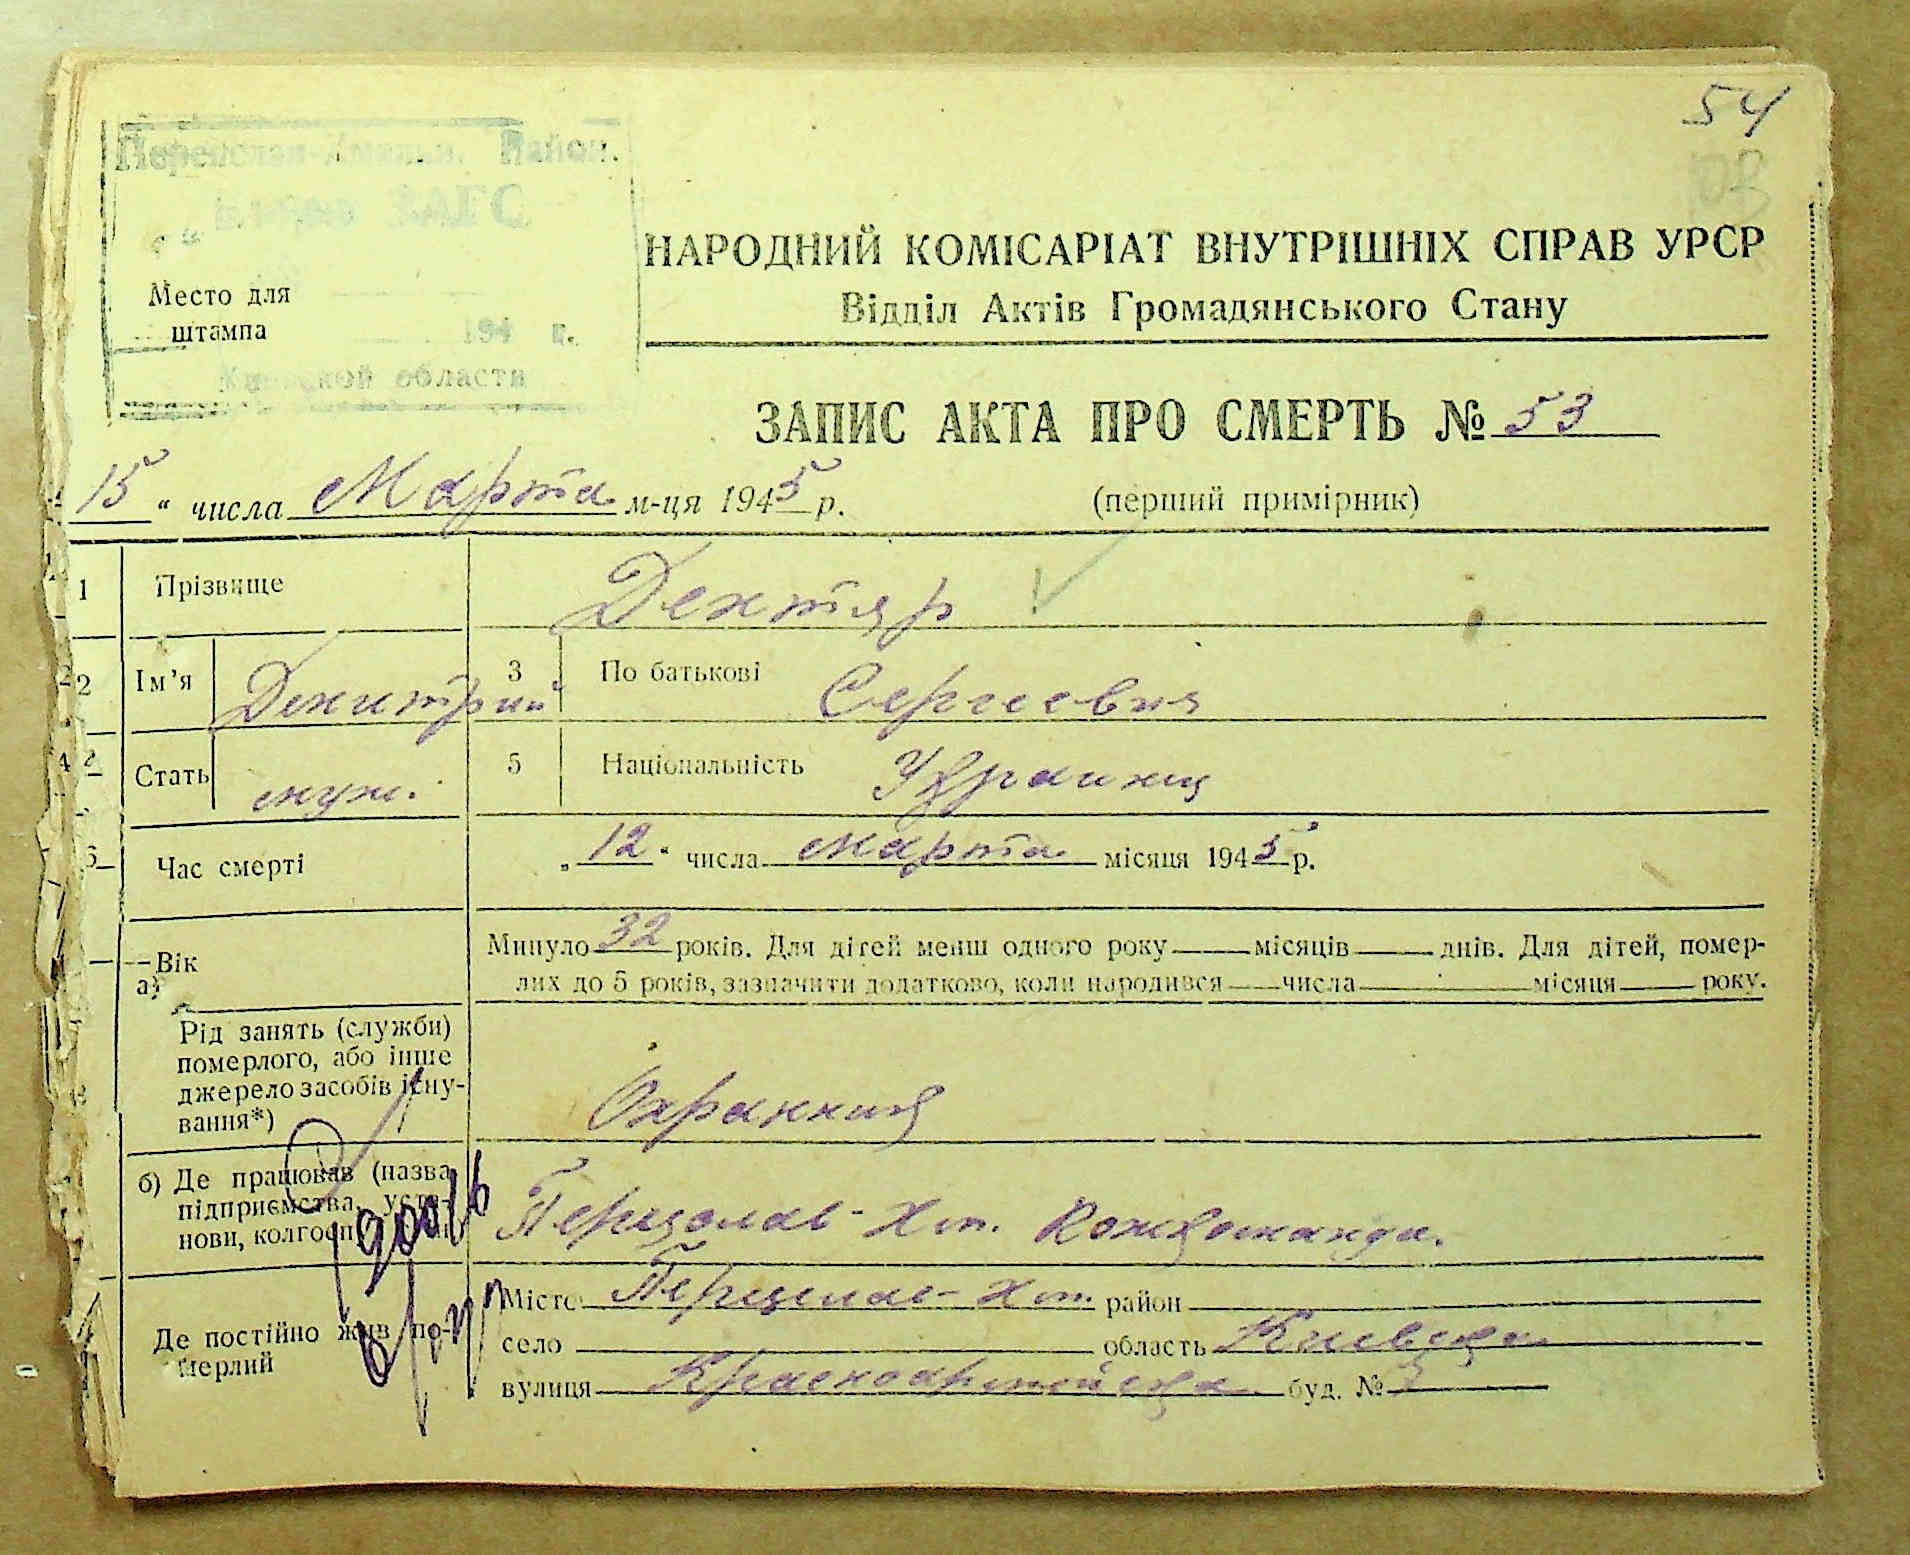 54
Район.
ЗАГС
Место для
штампа
194 г.
области
НАРОДНИЙ КОМІСАРІАТ ВНУТРІШНІХ СПРАВ УРСР
Відділ Актів Громадянського Стану
ЗАПИС АКТА ПРО СМЕРТЬ № 53
15 " числа Марта м-ця 1945 р. (перший примірник)
1 Прізвище Дехтяр
2 Ім'я Дмитрий 3 По батькові Сергеевич
4 Стать муж. 5 Національність Украинец
Час смерті „ 12 " числа Марта місяця 1945 р.
Вік
а)
Минуло 32 років. Для дітей менш одного року місяців днів. Для дітей, помер-
лих до 5 років, зазначити додатково, коли народився числа місяця року.
Рід занять (служби)
померлого, або інше
джерело засобів існу-
вання*)
Охранник
б) Де працював (назва
підприємства, уста-
нови, колгосп
Переяслав-Хм.
Де постійно жив по-
мерлий
Місто Переяслав-Хм. район
село область Киевская
вулиця Красноармейская буд. №